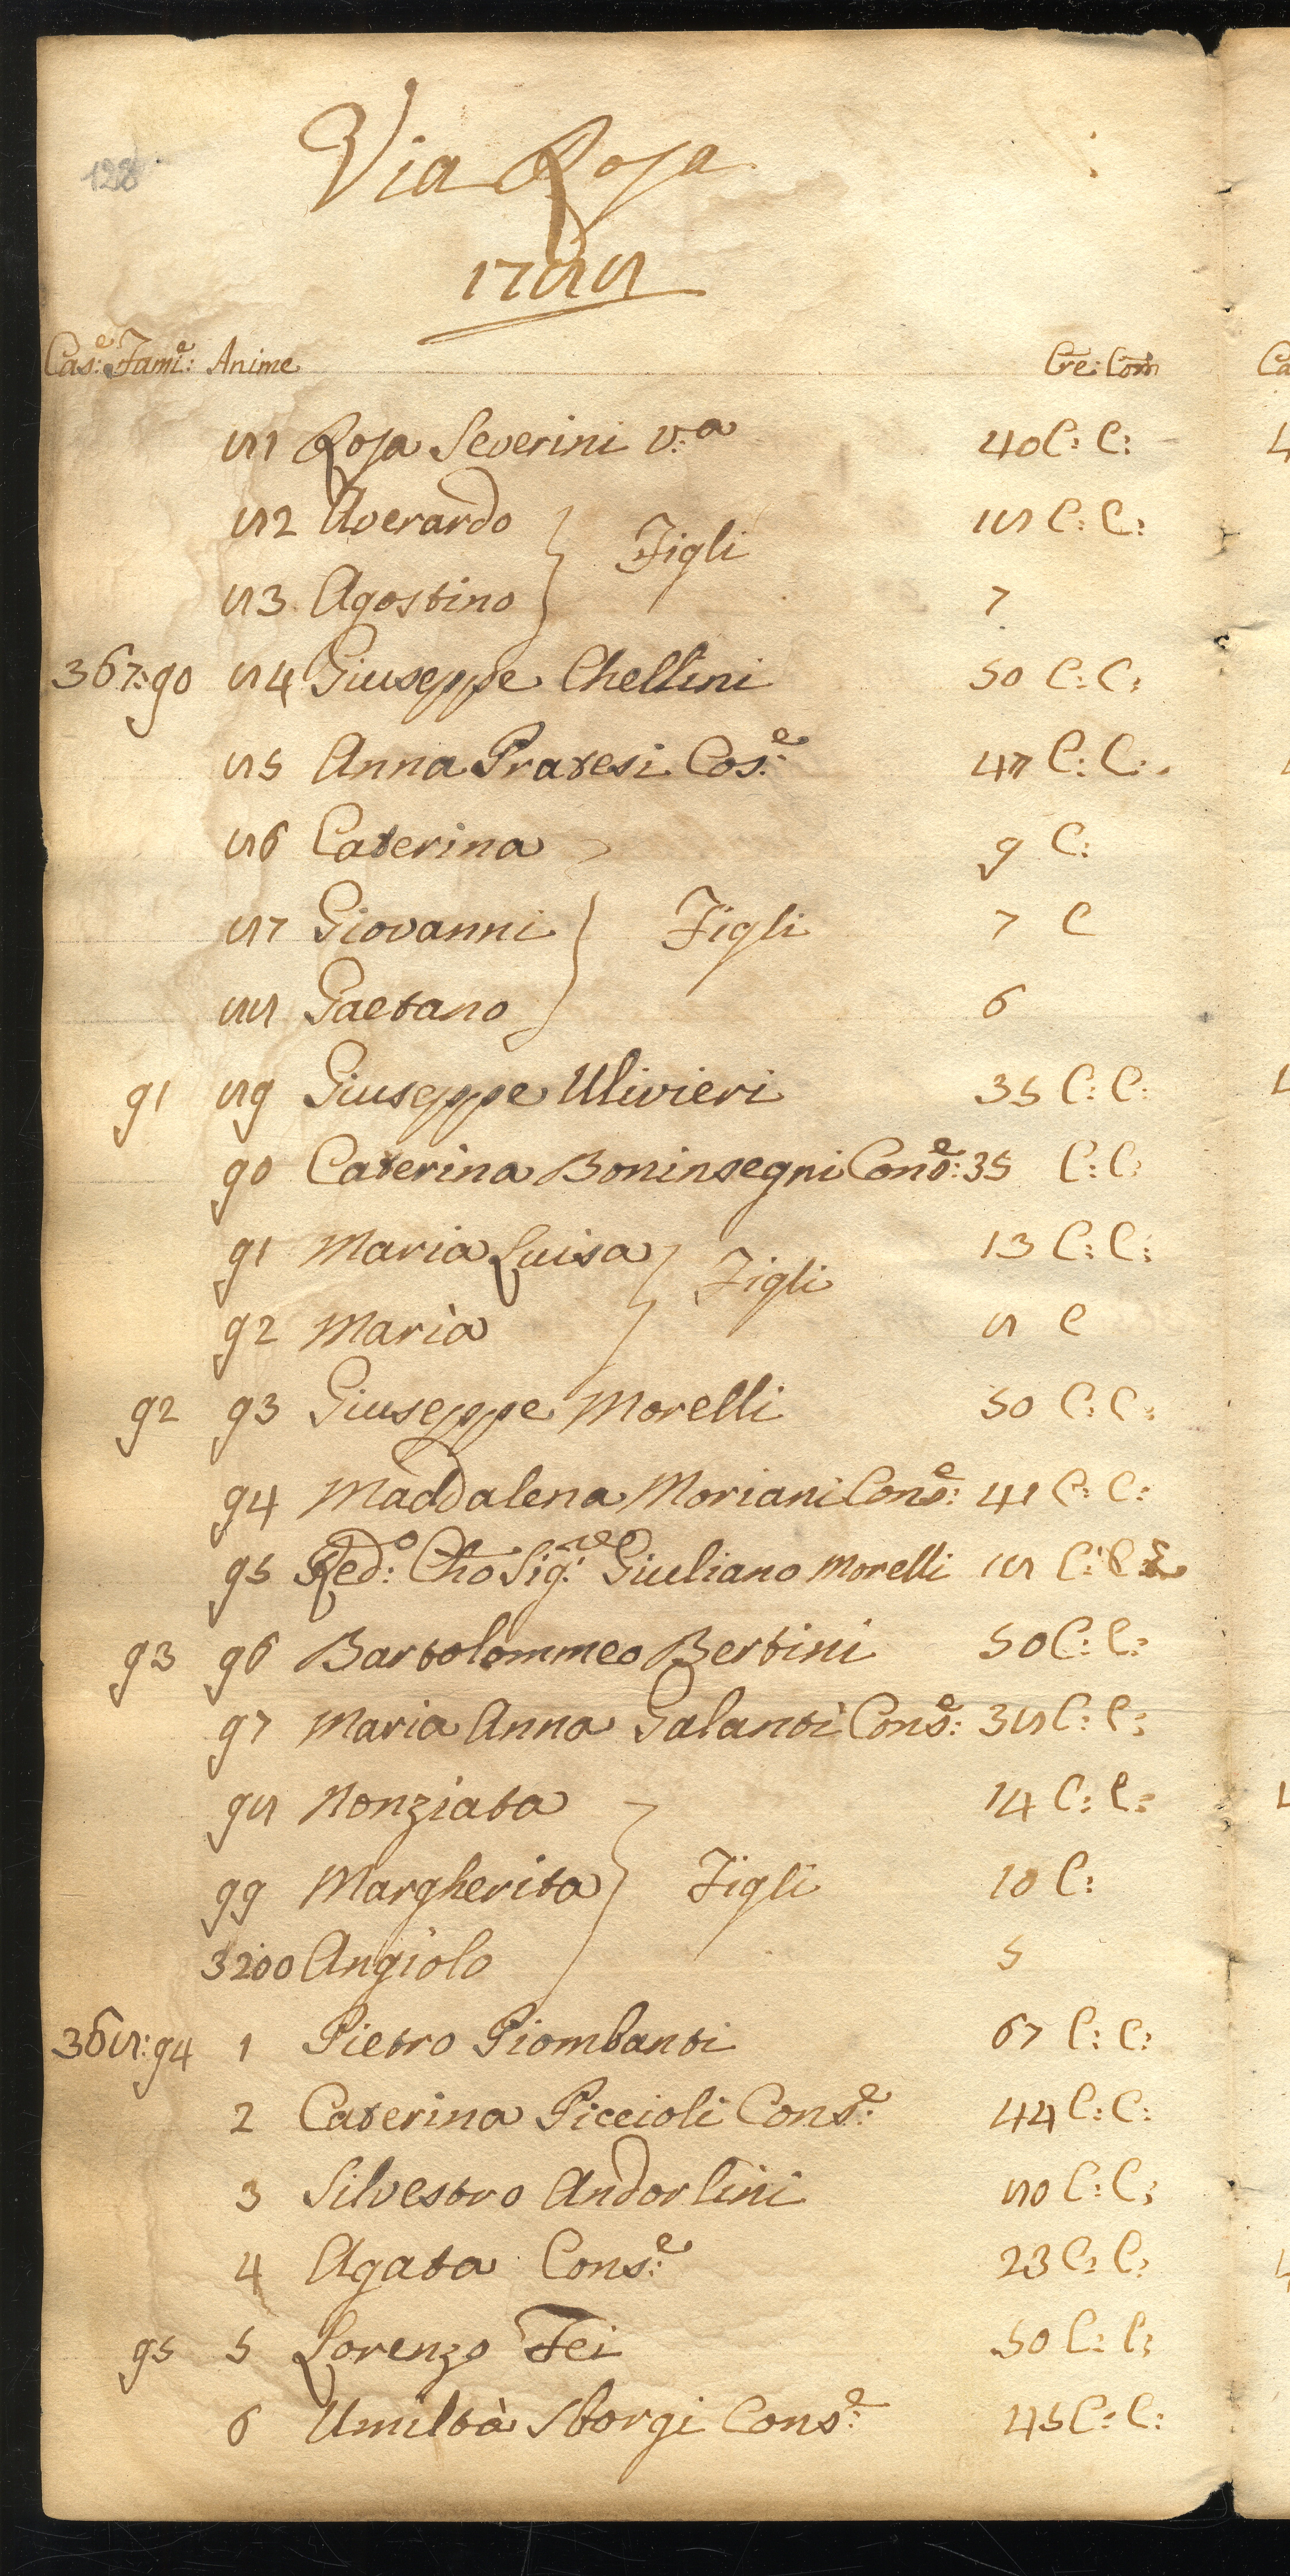 128
Via Rosa
1788
Cas:e Fami:e Anime Cre: Com
81 Rosa Severini v:a 40 C: C:
82 Averardo 18 C: C:
Figli
83 Agostino 7
367:90 84 Giuseppe Chellini 50 C: C:
85 Anna Pratesi Cos:e 47 C: C:
86 Caterina 9 C:
87 Giovanni Figli 7 C
88 Gaetano 6
91 89 Giuseppe Ulivieri 35 C: C:
90 Caterina Boninsegni Cons:e 35 C: C:
91 Maria Luisa 13 C: C:
Figli
92 Maria 8 C
92 93 Giuseppe Morelli 50 C: C:
94 Maddalena Moriani Cons:e 41 C: C:
95 Red:o Cho Sig:re Giuliano Morelli 18 C: C
93 96 Bartolommeo Bertini 50 C: C:
97 Maria Anna Galanti Cons:e 38 C: C:
98 Nonziata 14 C: C:
99 Margherita Figli 10 C:
3200 Angiolo 5
368:94 1 Pietro Piombanti 67 C: C:
2 Caterina Piccioli Cons:e 44 C: C:
3 Silvestro Andorlini 80 C: C:
4 Agata Cons:e 23 C: C:
95 5 Lorenzo Fei 50 C: C:
6 Umiltà Sborgi Cons:e 45 C: C: